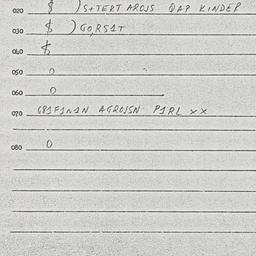 020 $ ) S+TEKT AROJS QAP KINDER
030 $ ) GO,RS1T
040 $
050 0
060 0
070 G81F1N1N AGROJSN P1RL XX
080 0